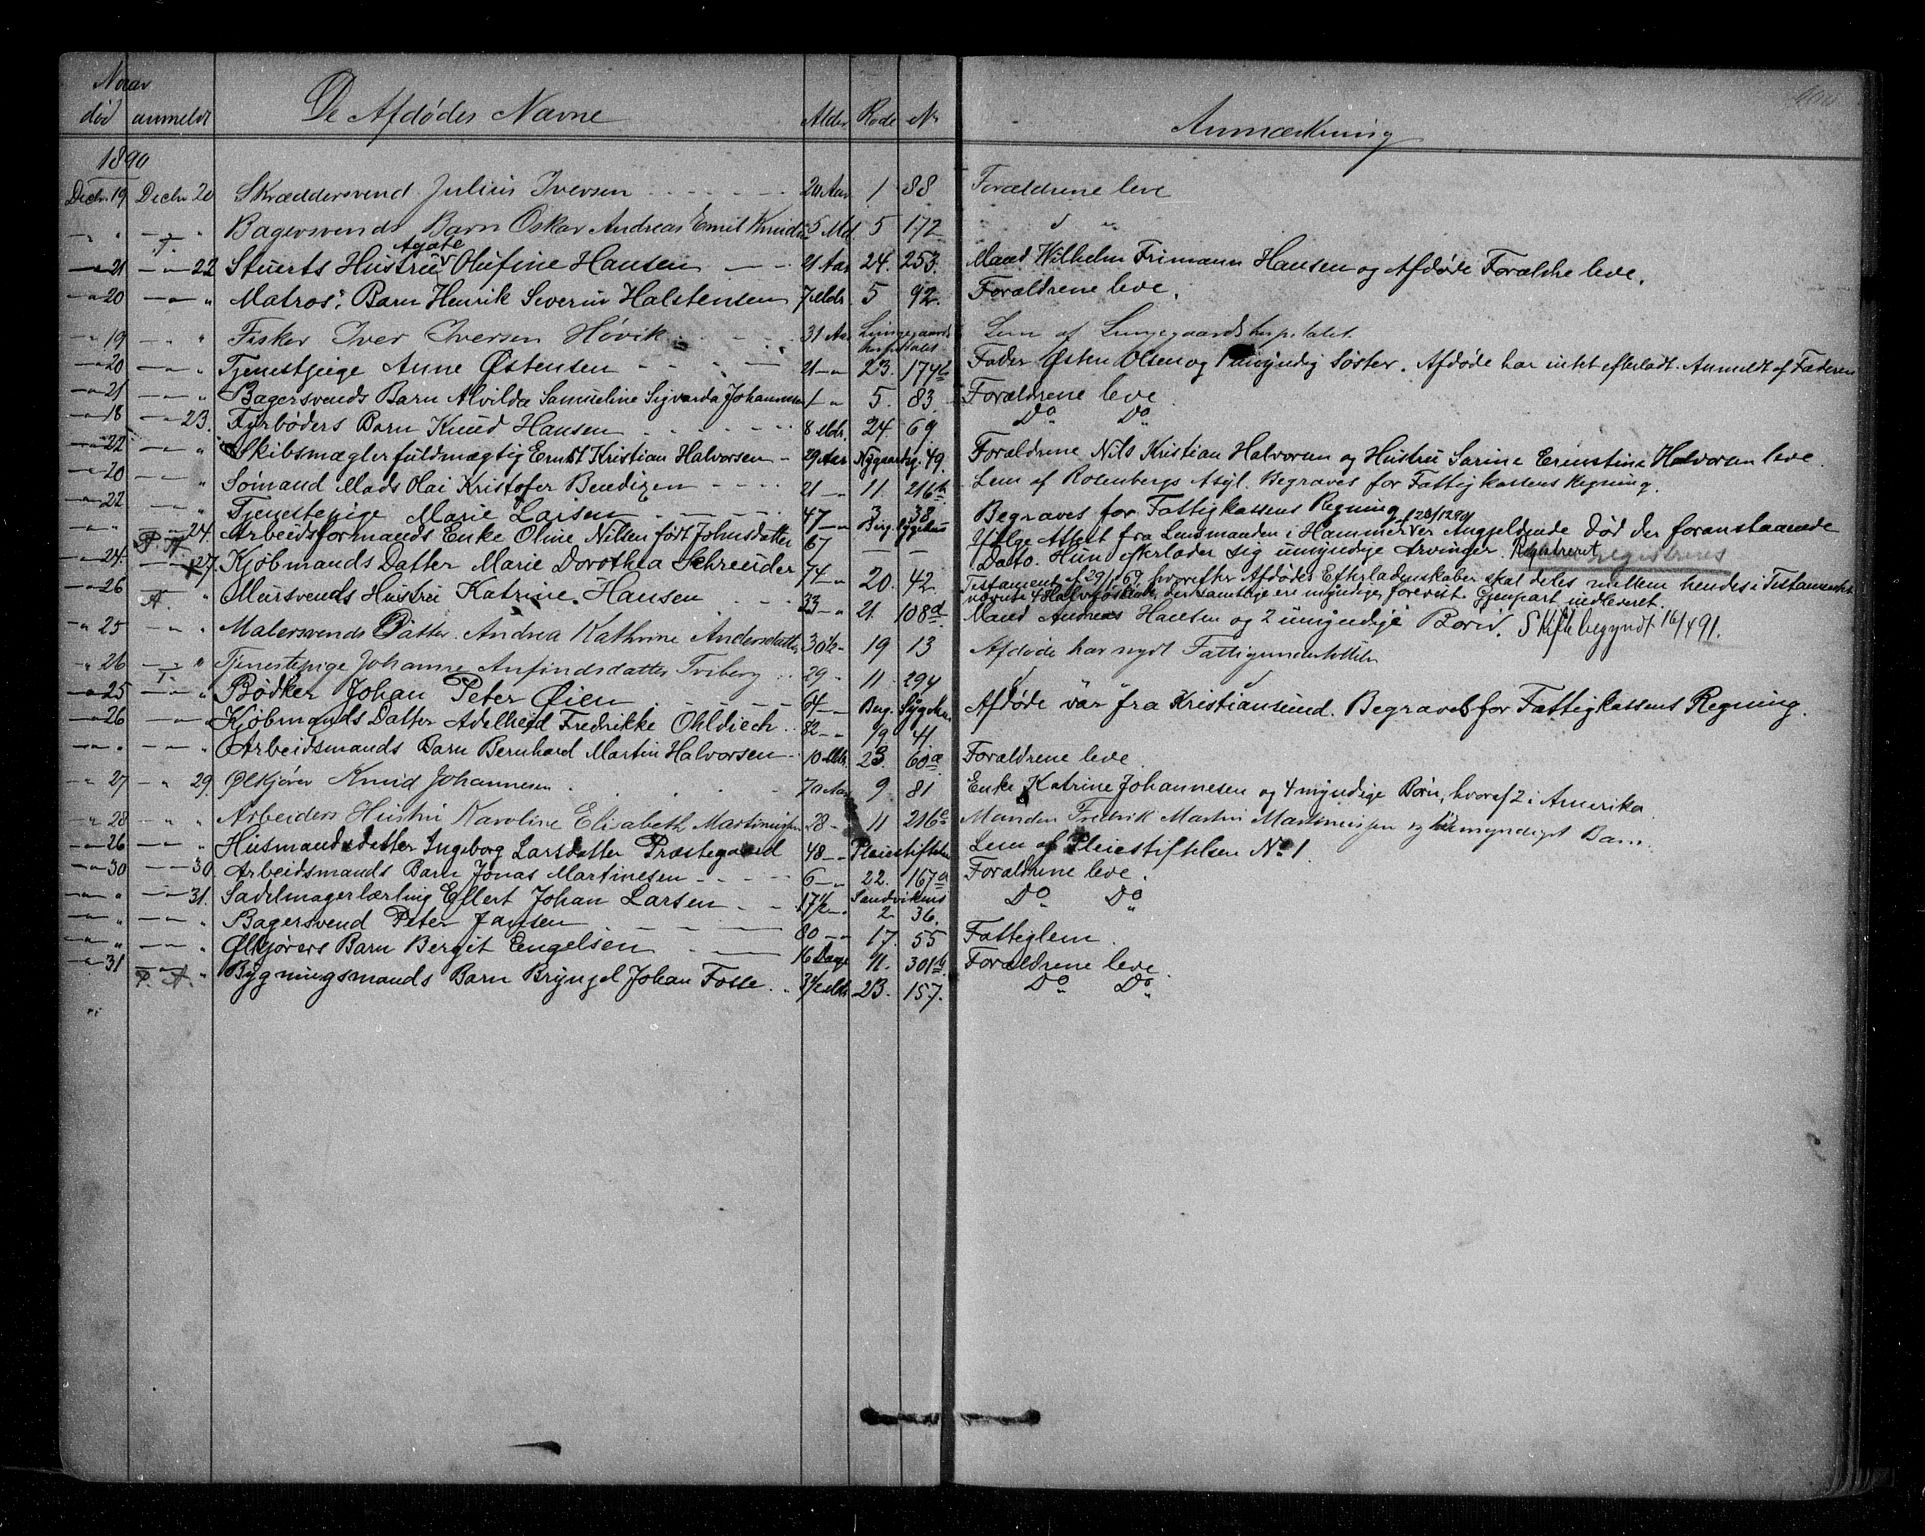 Naar
død anmeldt De Afdødes Navne Alder Rode No Anmærkning
1890
Decbr. 19 Decbr 20 Skræddersvend Julius Iversen 20 Aar 1 88 Forældrene leve
" " " Bagersvends Barn Oskar Andreas Emil Knudsen 5 Md. 5 172 " "
T.
Agate
" 21 " 22 Stuerts Hustru Olufine Hansen 21 Aar 24. 253. Mand Wilhelm Frimann Hansen og Afdøde Forældre leve.
" 20 " " Matros. Barn Henrik Severin Halstensen 7 Mdr. 5 92. Forældrene leve.
" 19 " " Fisker Iver Iversen Høvik 31 Aar Lungegaards hospitalet Lem af Lungegaardshospitalet
" 20 " " Tjenestpige Anne Østensen 21 " 23. 174b Fader Østen Olsen og 1 umyndig Søster. Afdøde har intet efterladt. Anmeldt af Faderen
" 21 " " Bagersvends Barn Alvilda Samueline Sigvarda Johannesen 1 " 5. 83. Forældrene leve
" 18 " 23. Fyrbøders Barn Knud Hansen 8 Mdr. 24. 69 Do Do
" 22 " " Skibsmæglerfuldmægtig Ernst Kristian Halvorsen 29 Aar Nygaardsg. 49. Forældrene Nils Kristian Halvorsen og Hustru Sarine Ernstine Halvorsen leve.
" 20 " " Sømand Mads Olai Kristofer Benedigen 21 " 11. 216b Lem af Rosenbergs Asyl. Begraves for Fattigkassens Regning.
" 22 " " Tjenestepige Marie Larsen 47 " 3 38 Begraves for Fattigkassens Regning
" " " 24. Arbeidsformands Enke Oline Nilsen født Johnsdatter 67 Berg. Sygehus Ifølge Attest fra Lensmanden i Hammer er Angjeldende død den foranstaaende
P. A. Dato. Hun efterlader sig umyndige Arvinger. Registreret
" 24. " 27. Kjøbmands Datter Marie Dorothea Schreuder 74 " 20. 42. Testament af 29/1 69, hvorefter Afdødes Efterladenskaber skal deles mellem hendes i Testamentet
nævnte 4 Halvsøskende, der samtlige ere myndige, forevist. Gjenpart indleveret.
" 26 " " Mursvends Hustru Katrine Hansen 33 " 21. 108a Mand Andreas Hansen og 2 umyndige Børn. Skifte begyndt 16/4 91.
A.
" 25 " " Malersvends Datter. Andrea Kathrine Andersdatter 30½ 19 13 Afdøde har nydt Fattigunderstøttelse
" 26 " " Tjenestepige Johanne Anfindsdatter Tviberg 29 " 11 294
T.
" 25 " " Bødker Johan Peter Øien 64 " Berg. Sygehus Afdøde var fra Kristiansund. Begraves for Fattigkassens Regning.
" 26 " " Kjøbmands Datter Adelheid Fredrikke Ohldiech 82 " 9 41
" " " " Arbeidsmands Barn Bernhard Martin Halvorsen 10 Mdr. 23. 60a Forældrene leve.
" 27 " 29. Ølkjører Knud Johannesen 70 Aar 9 81 Enke Katrine Johannesen og 4 myndige Børn, hvoraf 2 i Amerika
" 28 " " Arbeiders Hustru Karoline Elisabeth Martinusen 28 " 11 216c Manden Fredrik Martin Martinusen og umyndigt Barn.
" 26 " " Husmandsdatter Ingeborg Larsdatter Præstegaard 48 " Pleiestiftelsen Lem af Pleiestiftelsen No 1.
" 30 " 30. Arbeidsmands Barn Jonas Martinesen 6 " 22. 167a Forældrene leve.
" " " 31. Sadelmagerlærling Ellert Johan Larsen 17½ " Sandviksvei 2. 36. Do Do
" " " " Bagersvend Peter Jansen 80 " 17. 55 Fattiglem.
" " " " Ølkjørers Barn Bergit Engelsen 16 Dage 11. 301b Forældrene leve.
" 31 " " Bygningsmands Barn Brynjel Johan Fosse 3½ Mdr. 23. 157. Do Do
P. A.